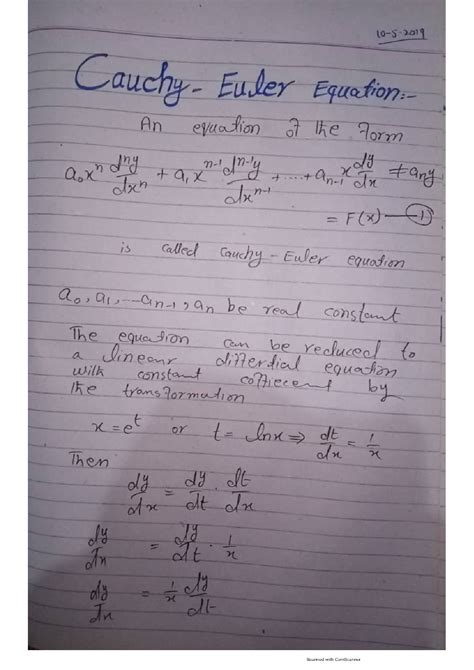 10-5-2019
Cauchy - Euler Equation:-
An equation of the Form
a₀xⁿ dⁿy/dxⁿ + a₁xⁿ⁻¹ dⁿ⁻¹y/dxⁿ⁻¹ + ..... + aₙ₋₁ x dy/dx + aₙy
= F(x) — ①
is called Cauchy - Euler equation
a₀, a₁, --- aₙ₋₁, aₙ be real constant
The equation can be reduced to
a linear differential equation
with constant cofficcent by
the transformation
x = eᵗ or t = lnx ⇒ dt/dx = 1/x
Then
dy/dx = dy/dt . dt/dx
dy/dx = dy/dt . 1/x
dy/dx = 1/x dy/dt
Scanned with CamScanner